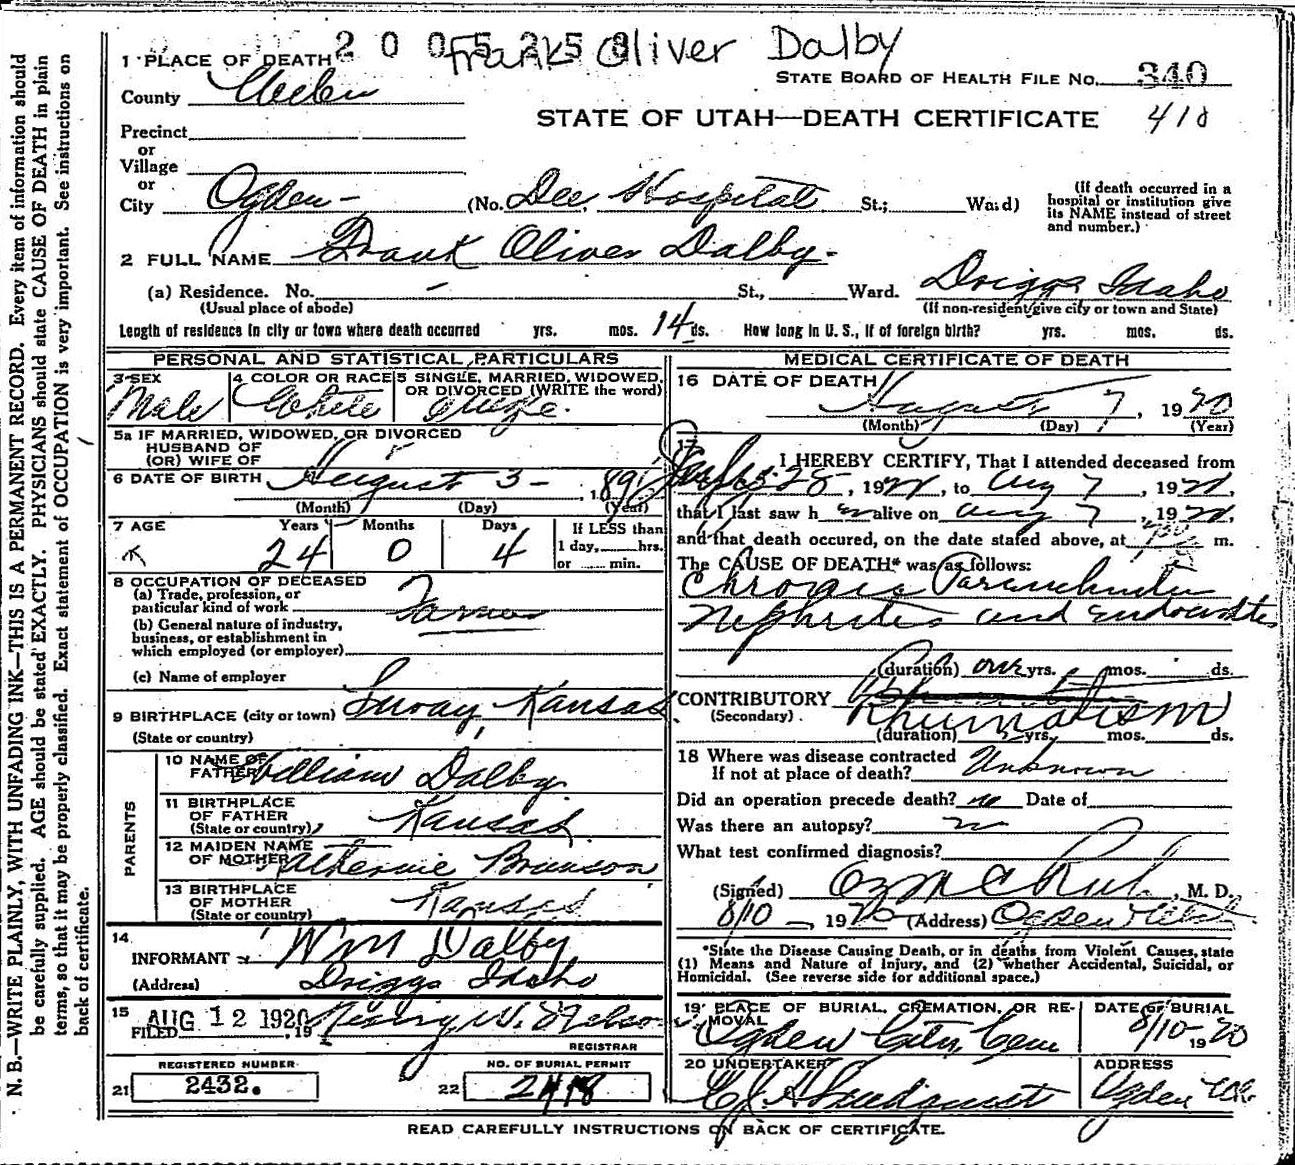 2005253
Frank Oliver Dalby
1 PLACE OF DEATH
STATE BOARD OF HEALTH FILE NO. 340
County Weber
STATE OF UTAH—DEATH CERTIFICATE 410
Precinct
or
Village
or
City Ogden - (No. Dee Hospital St.; Ward)
(If death occurred in a
hospital or institution give
its NAME instead of street
and number.)
2 FULL NAME Frank Oliver Dalby.
(a) Residence. No. - St., Ward. Driggs Idaho
(Usual place of abode) (If non-resident give city or town and State)
Length of residence in city or town where death occurred yrs. mos. 14 ds. How long in U. S., if of foreign birth? yrs. mos. ds.
PERSONAL AND STATISTICAL PARTICULARS
3 SEX 4 COLOR OR RACE 5 SINGLE, MARRIED, WIDOWED,
OR DIVORCED (WRITE the word)
Male White Single.
5a IF MARRIED, WIDOWED, OR DIVORCED
HUSBAND OF
(OR) WIFE OF
6 DATE OF BIRTH August 3 -
(Month) (Day) (Year)
7 AGE Years Months Days If LESS than
24 0 4 1 day, hrs.
or min.
8 OCCUPATION OF DECEASED
(a) Trade, profession, or
particular kind of work Farmer
(b) General nature of industry,
business, or establishment in
which employed (or employer)
(c) Name of employer
9 BIRTHPLACE (city or town) Kansas
(State or country)
PARENTS
10 NAME OF
FATHER William Dalby
11 BIRTHPLACE
OF FATHER
(State or country) Kansas
12 MAIDEN NAME
OF MOTHER Katherine Brunson
13 BIRTHPLACE
OF MOTHER
(State or country) Kansas
14
INFORMANT Wm Dalby
(Address) Driggs Idaho
15 AUG 12 1920
FILED , 19
REGISTRAR
REGISTERED NUMBER NO. OF BURIAL PERMIT
21 2432. 22 2418
MEDICAL CERTIFICATE OF DEATH
16 DATE OF DEATH
August 7, 1920
(Month) (Day) (Year)
17
I HEREBY CERTIFY, That I attended deceased from
28, 19, to Aug 7, 19,
that I last saw h alive on Aug 7, 19,
and that death occured, on the date stated above, at m.
The CAUSE OF DEATH* was as follows:
Chronic Parenchymites
Nephrites and Endocardites
(duration) one yrs. mos. ds.
CONTRIBUTORY
(Secondary) Rhumatism
(duration) yrs. mos. ds.
18 Where was disease contracted
If not at place of death? Unknown
Did an operation precede death? no Date of
Was there an autopsy? no
What test confirmed diagnosis?
(Signed) , M. D.
8/10 -, 1920 (Address) Ogden Utah
*State the Disease Causing Death, or in deaths from Violent Causes, state
(1) Means and Nature of Injury, and (2) whether Accidental, Suicidal, or
Homicidal. (See reverse side for additional space.)
19 PLACE OF BURIAL, CREMATION, OR RE- DATE OF BURIAL
MOVAL
Ogden City Cem 8/10-1920
20 UNDERTAKER ADDRESS
Ogden Ut.
READ CAREFULLY INSTRUCTIONS ON BACK OF CERTIFICATE.
N. B.—WRITE PLAINLY, WITH UNFADING INK—THIS IS A PERMANENT RECORD. Every item of information should
be carefully supplied. AGE should be stated EXACTLY. PHYSICIANS should state CAUSE OF DEATH in plain
terms, so that it may be properly classified. Exact statement of OCCUPATION is very important. See instructions on
back of certificate.